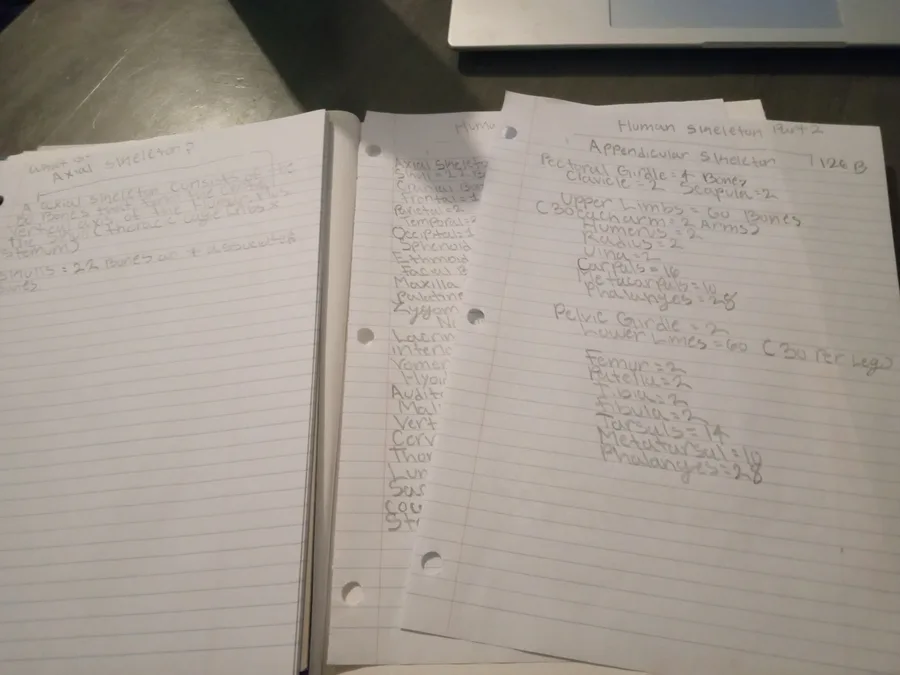 What is
Axial Skeleton?
A axial skeleton consists of
Bones that form the
vertical axis of the
Thoracic cage
Sternum
Skulls = 22 Bones an 7 associated
Bones
Axial Skeleto
Skull = 22
Cranial B
Frontal = 1
Parietal = 2
Temporal = 2
Occipital = 1
Sphenoid
Ethmoid
Facial B
Maxilla
Palatine
Zygom
Na
Lacrim
Inferio
Vomer
Hyoi
Audito
Mal
Vert
Cerv
Thor
Lum
Sac
Coc
Ste
Human Skeleton Part 2
Appendicular Skeleton
126 B
Pectoral Girdle = 4 Bones
Clavicle = 2 Scapula = 2
Upper Limbs = 60 Bones
(30 each arm = 2 Arms)
Humerus = 2
Radius = 2
Ulna = 2
Carpals = 16
Metacarpals = 10
Phalanges = 28
Pelvic Girdle = 2
Lower Limes = 60 (30 Per Leg)
Femur = 2
Patella = 2
Tibia = 2
Fibula = 2
Tarsals = 14
Metatarsal = 10
Phalanges = 28